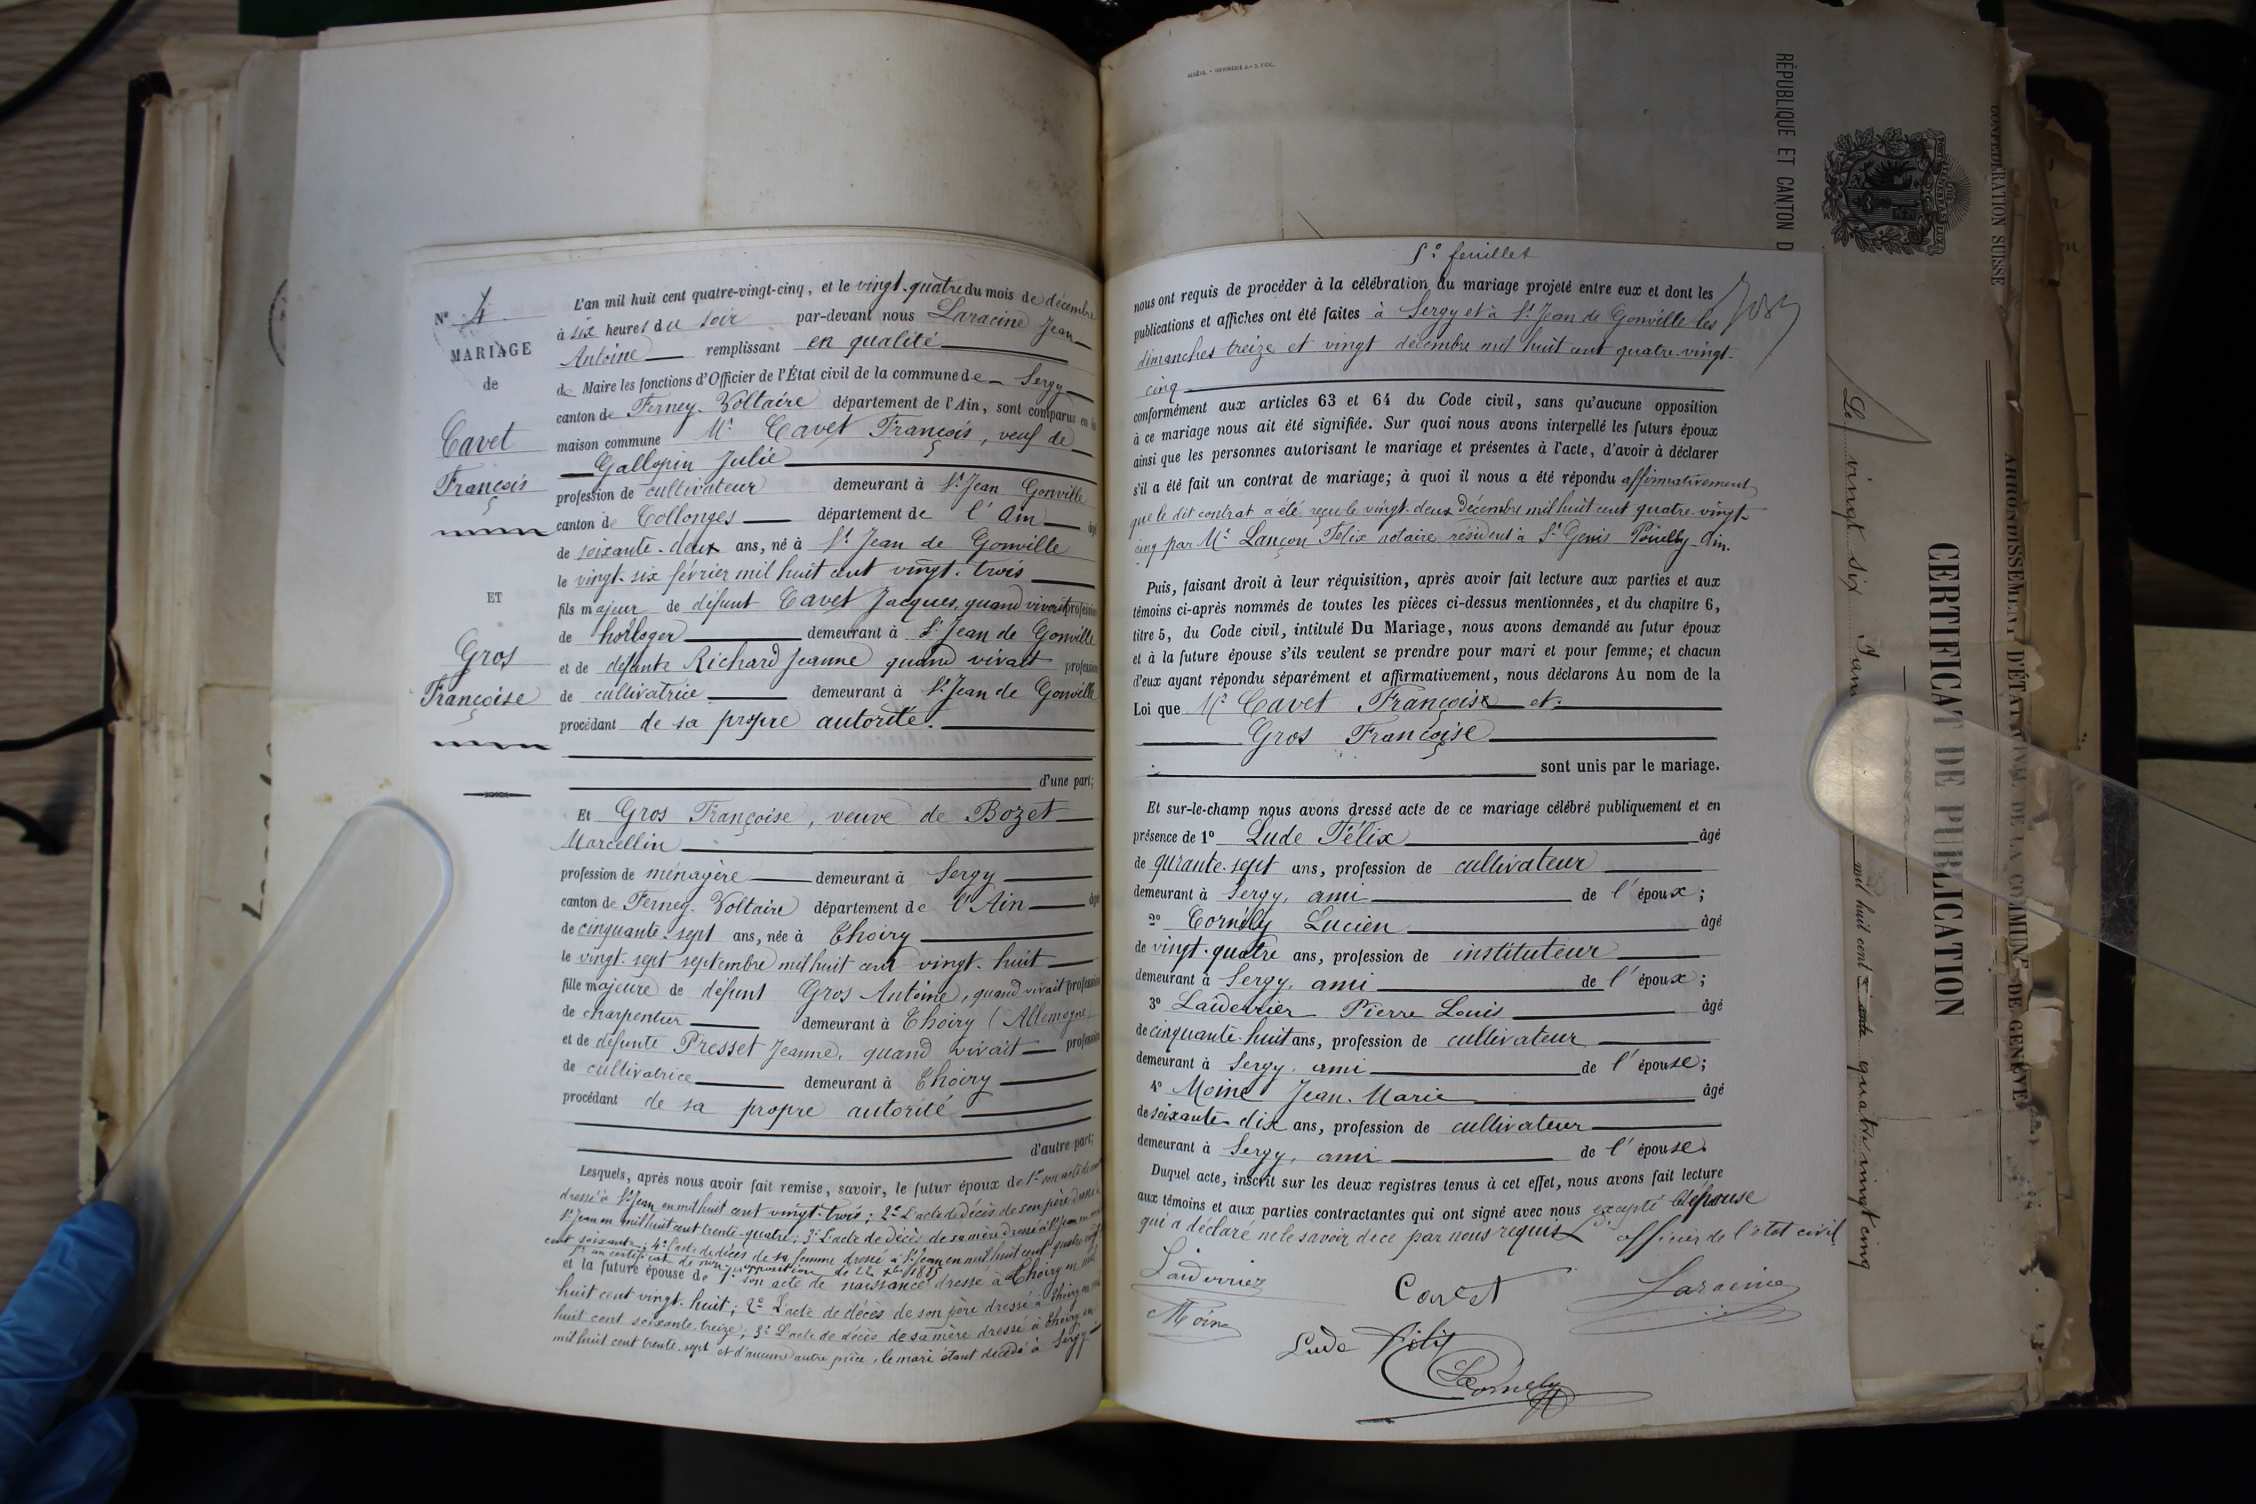 Nº 4
MARIAGE
de
Cavet
François
ET
Gros
Françoise
L'an mil huit cent quatre-vingt-cinq, et le vingt-quatre du mois de décembre
à six heures du soir par-devant nous Laracine Jean
Antoine remplissant en qualité
de Maire les fonctions d'Officier de l'État civil de la commune de Sergy
canton de Ferney-Voltaire département de l'Ain, sont comparus en la
maison commune Mr Cavet François, veuf de
Gallopin Julie
profession de cultivateur demeurant à St Jean Gonville
canton de Collonges département de l'Ain âgé
de soixante-deux ans, né à St Jean de Gonville
le vingt-six février mil huit cent vingt-trois
fils majeur de défunt Cavet Jacques, quand vivait profession
de horloger demeurant à St Jean de Gonville
et de défunte Richard Jeanne quand vivait profession
de cultivatrice demeurant à St Jean de Gonville
procédant de sa propre autorité.
d'une part;
Et Gros Françoise, veuve de Bozet
Marcellin
profession de ménagère demeurant à Sergy
canton de Ferney-Voltaire département de l'Ain âgé
de cinquante-sept ans, née à Thoiry
le vingt-sept septembre mil huit cent vingt-huit
fille majeure de défunt Gros Antoine, quand vivait profession
de charpentier demeurant à Thoiry (Allemogne
et de défunte Presset Jeanne, quand vivait profession
de cultivatrice demeurant à Thoiry
procédant de sa propre autorité
d'autre part;
Lesquels, après nous avoir fait remise, savoir, le futur époux de 1º son acte de
dressé à St Jean en mil huit cent vingt-trois; 2º L'acte de décès de son père dressé
St Jean en mil huit cent trente-quatre; 3º L'acte de décès de sa mère dressé à St Jean en mil
cent soixante; 4º l'acte de décès de sa femme dressé à St Jean en mil huit cent quatre-vingt
5º un certificat de non-opposition de 22 Xbre 1885
et la future épouse de 1º son acte de naissance dressé à Thoiry en mil
huit cent vingt-huit; 2º L'acte de décès de son père dressé à Thoiry en mil
huit cent soixante-treize; 3º L'acte de décès de sa mère dressé à Thoiry en
mil huit cent trente-sept et d'aucune autre pièce, le mari étant décédé à Sergy
5º feuillet
nous ont requis de procéder à la célébration du mariage projeté entre eux et dont les
publications et affiches ont été faites à Sergy et à St Jean de Gonville les
dimanches treize et vingt décembre mil huit cent quatre-vingt-
cinq
conformément aux articles 63 et 64 du Code civil, sans qu'aucune opposition
à ce mariage nous ait été signifiée. Sur quoi nous avons interpellé les futurs époux
ainsi que les personnes autorisant le mariage et présentes à l'acte, d'avoir à déclarer
s'il a été fait un contrat de mariage; à quoi il nous a été répondu affirmativement
que le dit contrat a été reçu le vingt-deux Décembre mil huit cent quatre-vingt-
cinq par Me Lançon Félix notaire résident à St Genis Pouilly Ain.
Puis, faisant droit à leur réquisition, après avoir fait lecture aux parties et aux
témoins ci-après nommés de toutes les pièces ci-dessus mentionnées, et du chapitre 6,
titre 5, du Code civil, intitulé Du Mariage, nous avons demandé au futur époux
et à la future épouse s'ils veulent se prendre pour mari et pour femme; et chacun
d'eux ayant répondu séparément et affirmativement, nous déclarons Au nom de la
Loi que Mr Cavet François et
Gros Françoise
sont unis par le mariage.
Et sur-le-champ nous avons dressé acte de ce mariage célébré publiquement et en
présence de 1º Lude Félix âgé
de qurante-sept ans, profession de cultivateur
demeurant à Sergy, ami de l'époux;
2º Cornély Lucien âgé
de vingt-quatre ans, profession de instituteur
demeurant à Sergy, ami de l'époux;
3º Laiderrier Pierre Louis âgé
de cinquante-huit ans, profession de cultivateur
demeurant à Sergy, ami de l'épouse;
4º Moine Jean-Marie âgé
de soixante-dix ans, profession de cultivateur
demeurant à Sergy, ami de l'épouse.
Duquel acte, inscrit sur les deux registres tenus à cet effet, nous avons fait lecture
aux témoins et aux parties contractantes qui ont signé avec nous excepté l'épouse
qui a déclaré ne le savoir de ce par nous requis L'officier de l'état civil
Laiderrier
Cavet
Laracine
Moine
Lude Félix
Cornély
RÉPUBLIQUE ET CANTON D
CONFÉDÉRATION SUISSE
ARRONDISSEMENT D'ÉTAT CIVIL DE LA COMMUNE DE GENÈVE
CERTIFICAT DE PUBLICATION
Le vingt six Jan
mil huit cent quatre vingt cinq